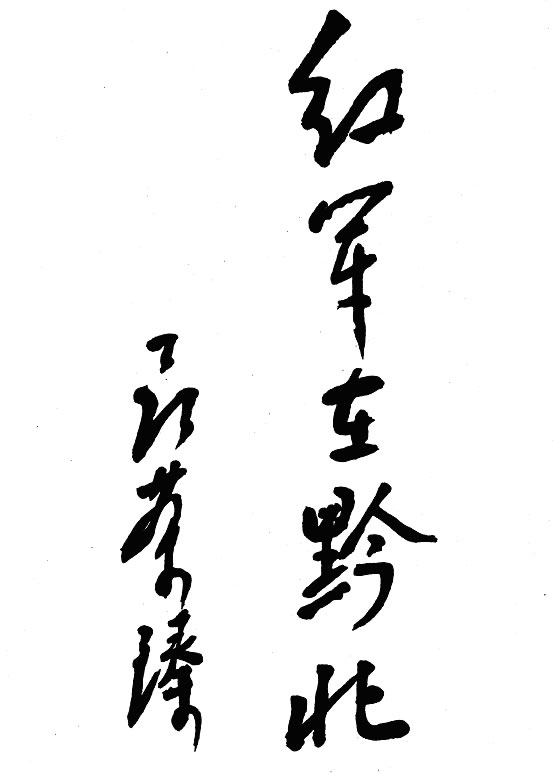 红军在黔北
聂荣臻